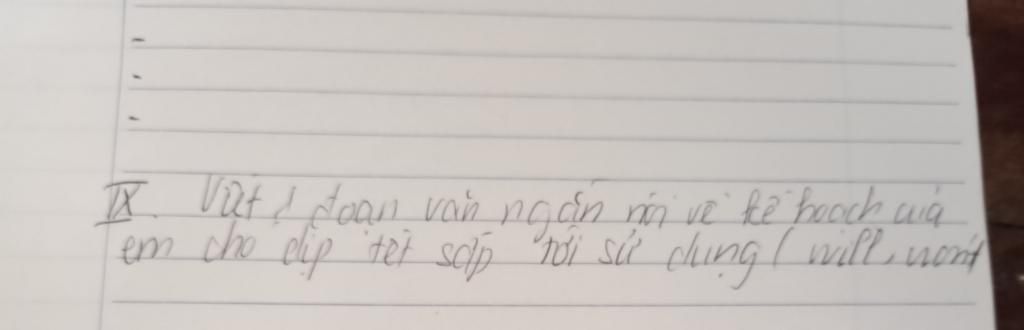 -
-
-
IX. Viết 1 đoạn văn ngắn nói về kế hoạch của
em cho dịp tết sắp tới sử dụng (will, won't